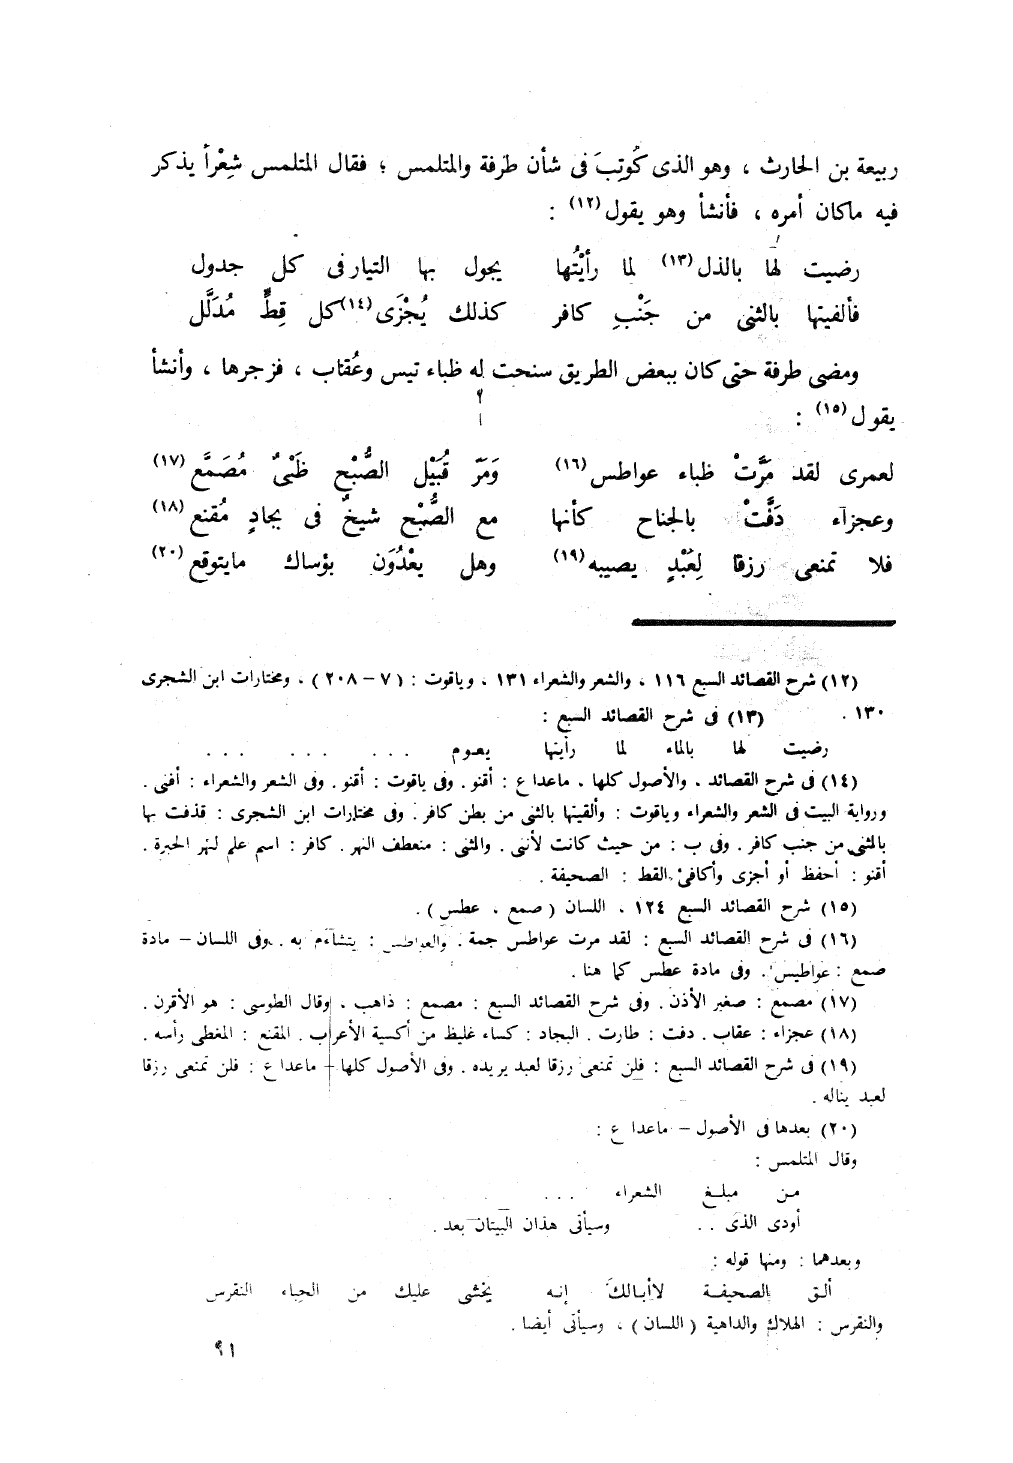 ربيعة بن الحارث ، وهو الذى كُوتِبَ فى شأن طرفة والمتلمس ؛ فقال المتلمس شِعْراً يذكر
فيه ماكان أمره ، فأنشأ وهو يقول (١٢) :
رضيت لها بالذل (١٣) لما رأيْتُها يجول بها التيار فى كل جدول
فألفيتها بالثنى من جَنْبِ كافر كذلك يُجْزَى (١٤) كل قِطٍّ مُدَلَّل
ومضى طرفة حتى كان ببعض الطريق سنحت له ظباء تيس وعُقاب ، فزجرها ، وأنشأ
يقول (١٥) :
لعمرى لقد مَرَّتْ ظباء عواطس (١٦) وَمَرّ قُبَيْل الصُّبْح ظَبْىٌ مُصَمَّع (١٧)
وعجزآء دَفَّتْ بالجناح كأنها مع الصُّبْح شيخٌ فى بجادٍ مُقنع (١٨)
فلا تمنعى رزقا لِعَبْدٍ يصيبه (١٩) وهل يعْدُوَن بؤساك مايتوقع (٢٠)
(١٢) شرح القصائد السبع ١١٦ ، والشعر والشعراء ١٣١ ، وياقوت : (٧ – ٢٠٨) ، ومختارات ابن الشجرى
١٣٠ . (١٣) فى شرح القصائد السبع :
رضيت لها بالماء لما رأيتها يعوم ... ... ... ...
(١٤) فى شرح القصائد ، والأصول كلها ، ماعدا ع : أقنو . وفى ياقوت : أقنو . وفى الشعر والشعراء : أفنى .
ورواية البيت فى الشعر والشعراء وياقوت : وألقيتها بالثنى من بطن كافر . وفى مختارات ابن الشجرى : قذفت بها
بالثنى من جنب كافر . وفى ب : من حيث كانت لأننى . والثنى : منعطف النهر . كافر : اسم علم لنهر الحيرة .
أقنو : أحفظ أو أجزى وأكافئ . القط : الصحيفة .
(١٥) شرح القصائد السبع ١٢٤ ، اللسان ( صمع ، عطس ) .
(١٦) فى شرح القصائد السبع : لقد مرت عواطس جمة . والعواطس : يتشاءم به . وفى اللسان – مادة
صمع : عواطيس . وفى مادة عطس كما هنا .
(١٧) مصمع : صغير الأذن . وفى شرح القصائد السبع : مصمع : ذاهب ، وقال الطوسى : هو الأقرن .
(١٨) عجزاء : عقاب . دفت : طارت . البجاد : كساء غليظ من أكسية الأعراب . المقنع : المغطى رأسه .
(١٩) فى شرح القصائد السبع : فلن تمنعى رزقا لعبد يريده . وفى الأصول كلها – ماعدا ع : فلن تمنعى رزقا
لعبد يناله .
(٢٠) بعدها فى الأصول – ماعدا ع :
وقال المتلمس :
من مبلغ الشعراء ... . . .
أودى الذى . . وسيأتى هذان البيتان بعد .
وبعدهما : ومنها قوله :
ألق الصحيفة لاأبالك إنه يخشى عليك من الحباء النقرس
والنقرس : الهلاك والداهية ( اللسان ) ، وسيأتى أيضا .
٩١